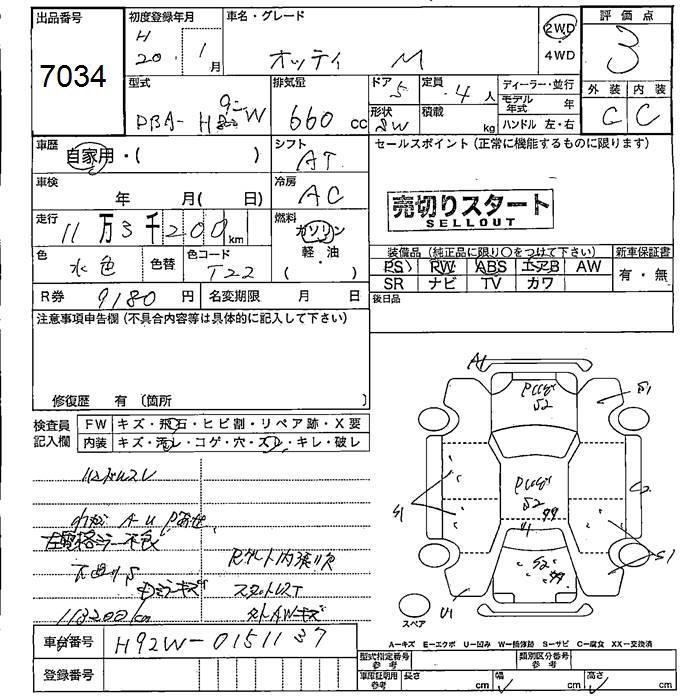 出品番号
7034
初度登録年月
H
20. 1月
車名・グレード
オッティ M
2WD
4WD
評価点
3
外装 内装
C C
型式
DBA-H92W
排気量
660 cc
ドア 5
形状
定員 4人
積載 kg
ディーラー・並行
モデル年式 年
ハンドル 左・右
車歴
自家用・( )
シフト
AT
セールスポイント(正常に機能するものに限ります)
売切りスタート
SELLOUT
車検
年 月( 日)
冷房
AC
走行
11万3千200km
燃料
ガソリン
軽・油
( )
色
水色
色替
色コード
T22
装備品(純正品に限り○をつけて下さい)
新車保証書
PS RW ABS エアB AW
SR ナビ TV カワ
有・無
R券 9180円
名変期限 月 日
後日品
注意事項申告欄(不具合内容等は具体的に記入して下さい)
修復歴 有(箇所 )
検査員記入欄
FW キズ・飛石・ヒビ割・リペア跡・X要
内装 キズ・汚レ・コゲ・穴・スレ・キレ・破レ
113200km
A1
S2
S1
S2
99
S1
S1
S2
99
U1
スペア
車台番号
H92W-0151137
登録番号
A-キズ E-エクボ U-凹み W-補修跡 S-サビ C-腐食 XX-交換済
型式指定番号 参考
類別区分番号 参考
車庫証明用 参考
長さ cm
幅 cm
高さ cm